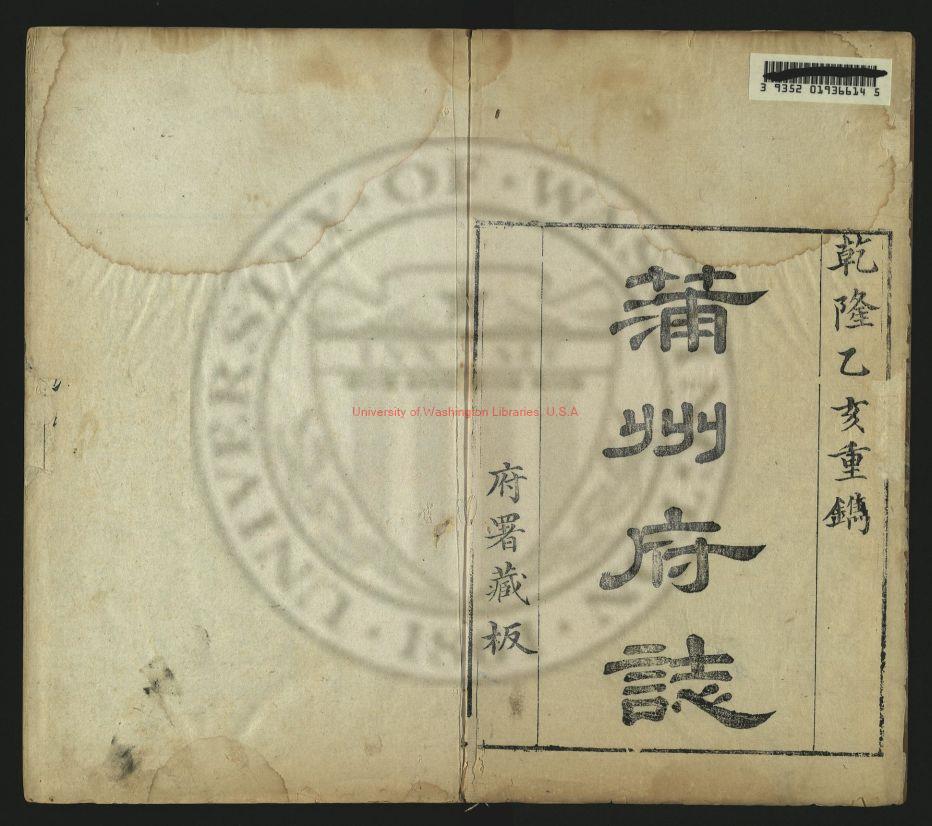 乾隆乙亥重鐫
蒲州府誌
府署藏板
3 9352 01936614 5
University of Washington Libraries, U.S.A
UNIVERSITY · OF · WA